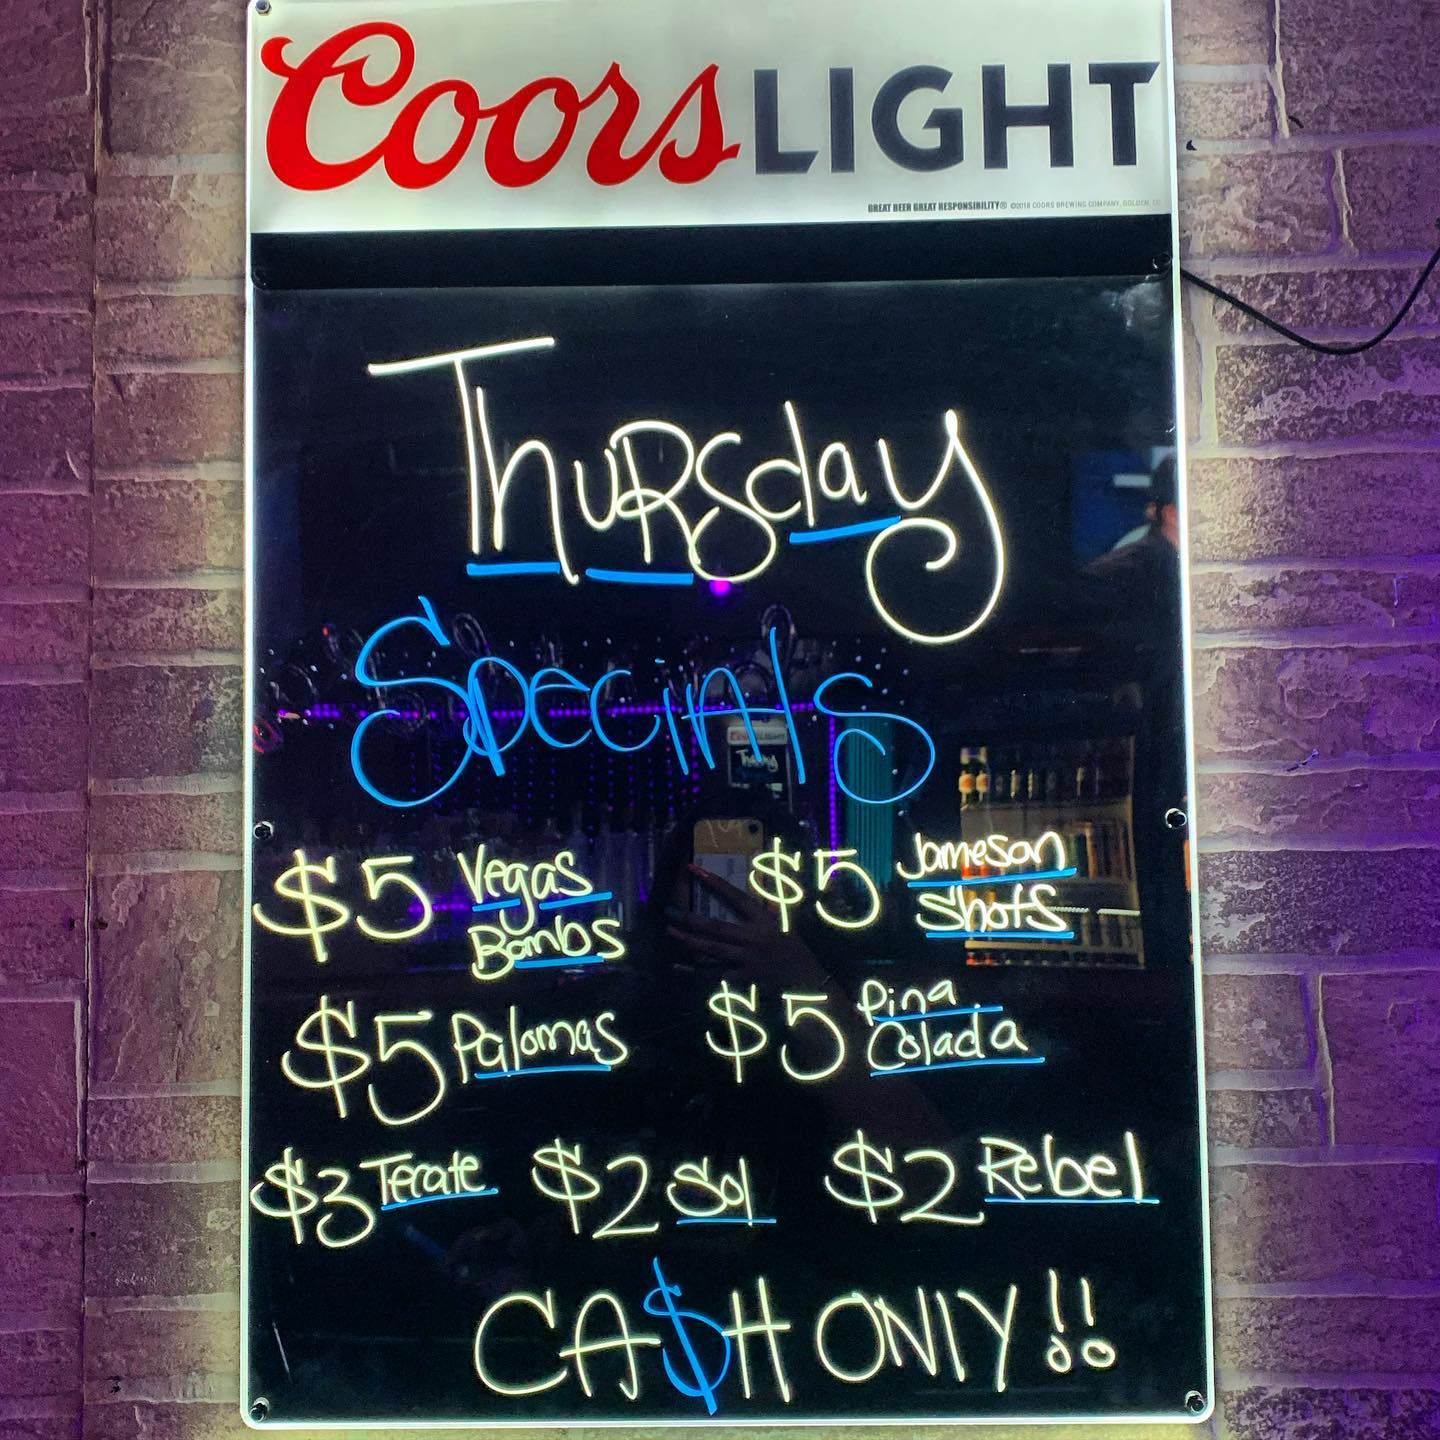 Coors LIGHT
GREAT BEER GREAT RESPONSIBILITY® ©2018 COORS BREWING COMPANY, GOLDEN, CO
Thursday
Specials
$5 Vegas Bombs
$5 Jameson Shots
$5 Palomas
$5 Pina Colada
$3 Tecate $2 Sol $2 Rebel
CA$H ONlY!!